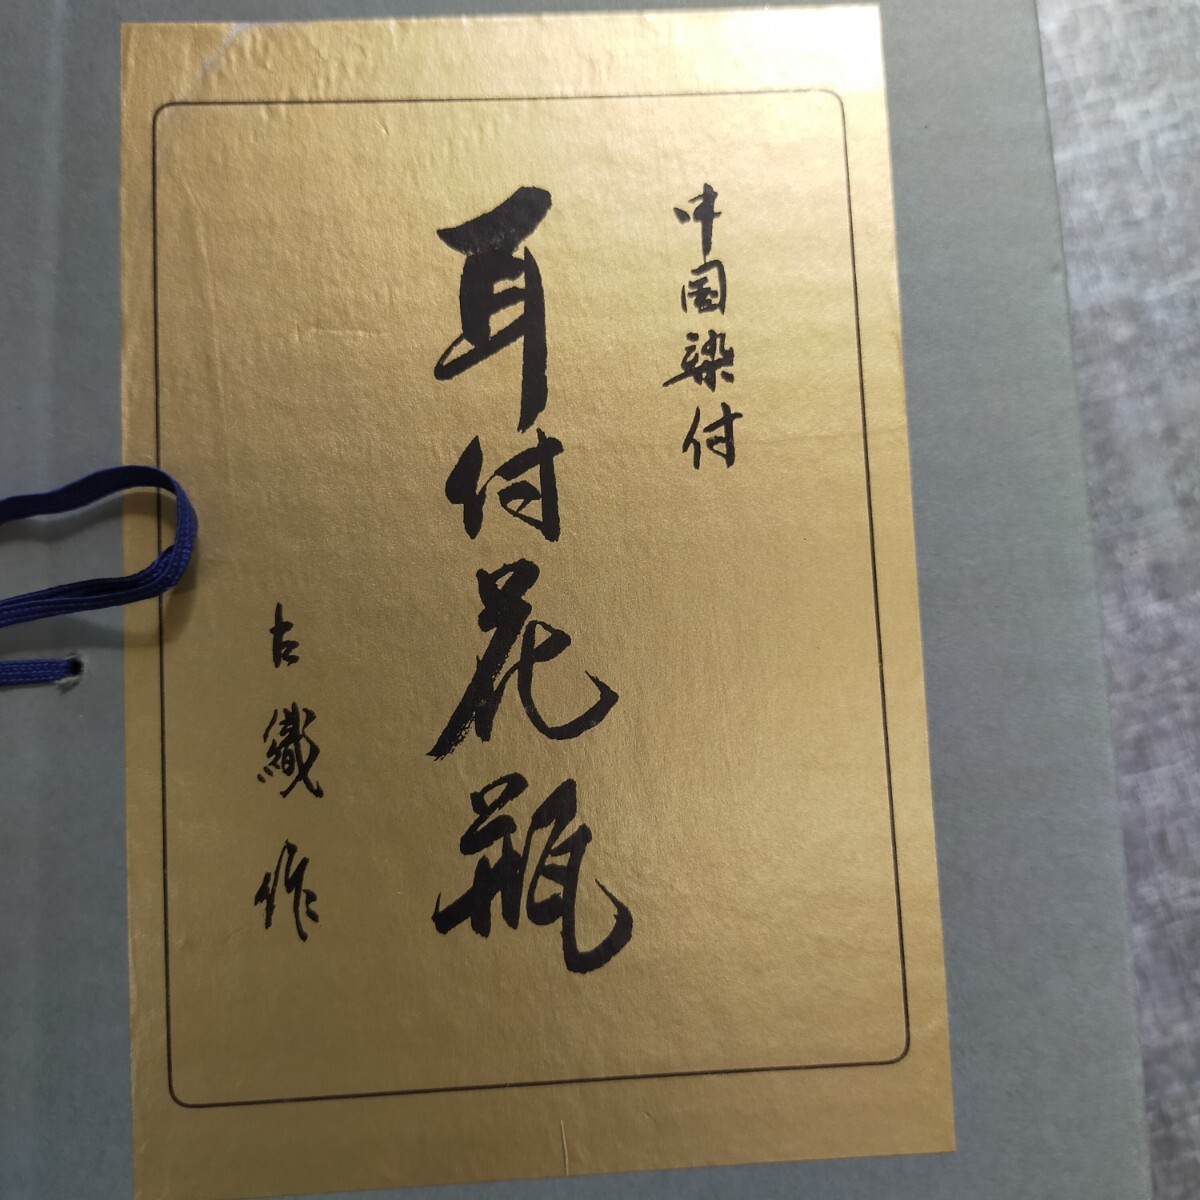 中国染付
耳付花瓶
古織作